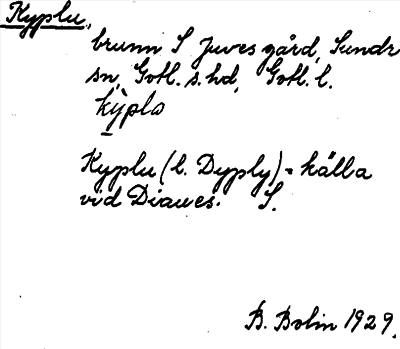 Kyplu,
brunn S Juves gård, Sundre
sn, Gotl. s. hd, Gotl. l.
kỳpla
Kyplu (l. Dyply) = källa
vid Diauves. S.
B. Bolin 1929.